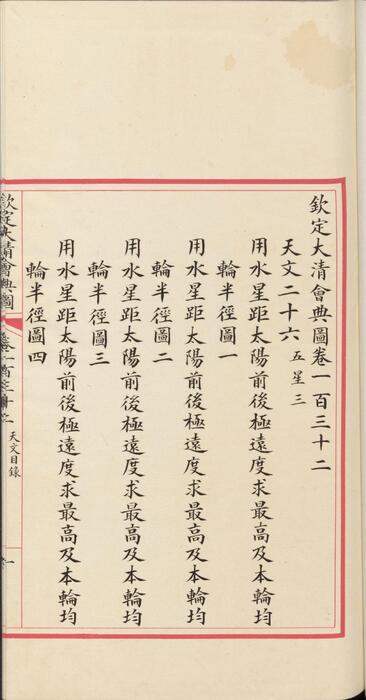 欽定大清會典圖卷一百三十二
天文二十六 五星三
用水星距太陽前後極遠度求最高及本輪均
輪半徑圖一
用水星距太陽前後極遠度求最高及本輪均
輪半徑圖二
用水星距太陽前後極遠度求最高及本輪均
輪半徑圖三
用水星距太陽前後極遠度求最高及本輪均
輪半徑圖四
欽定大清會典圖
天文目錄
一